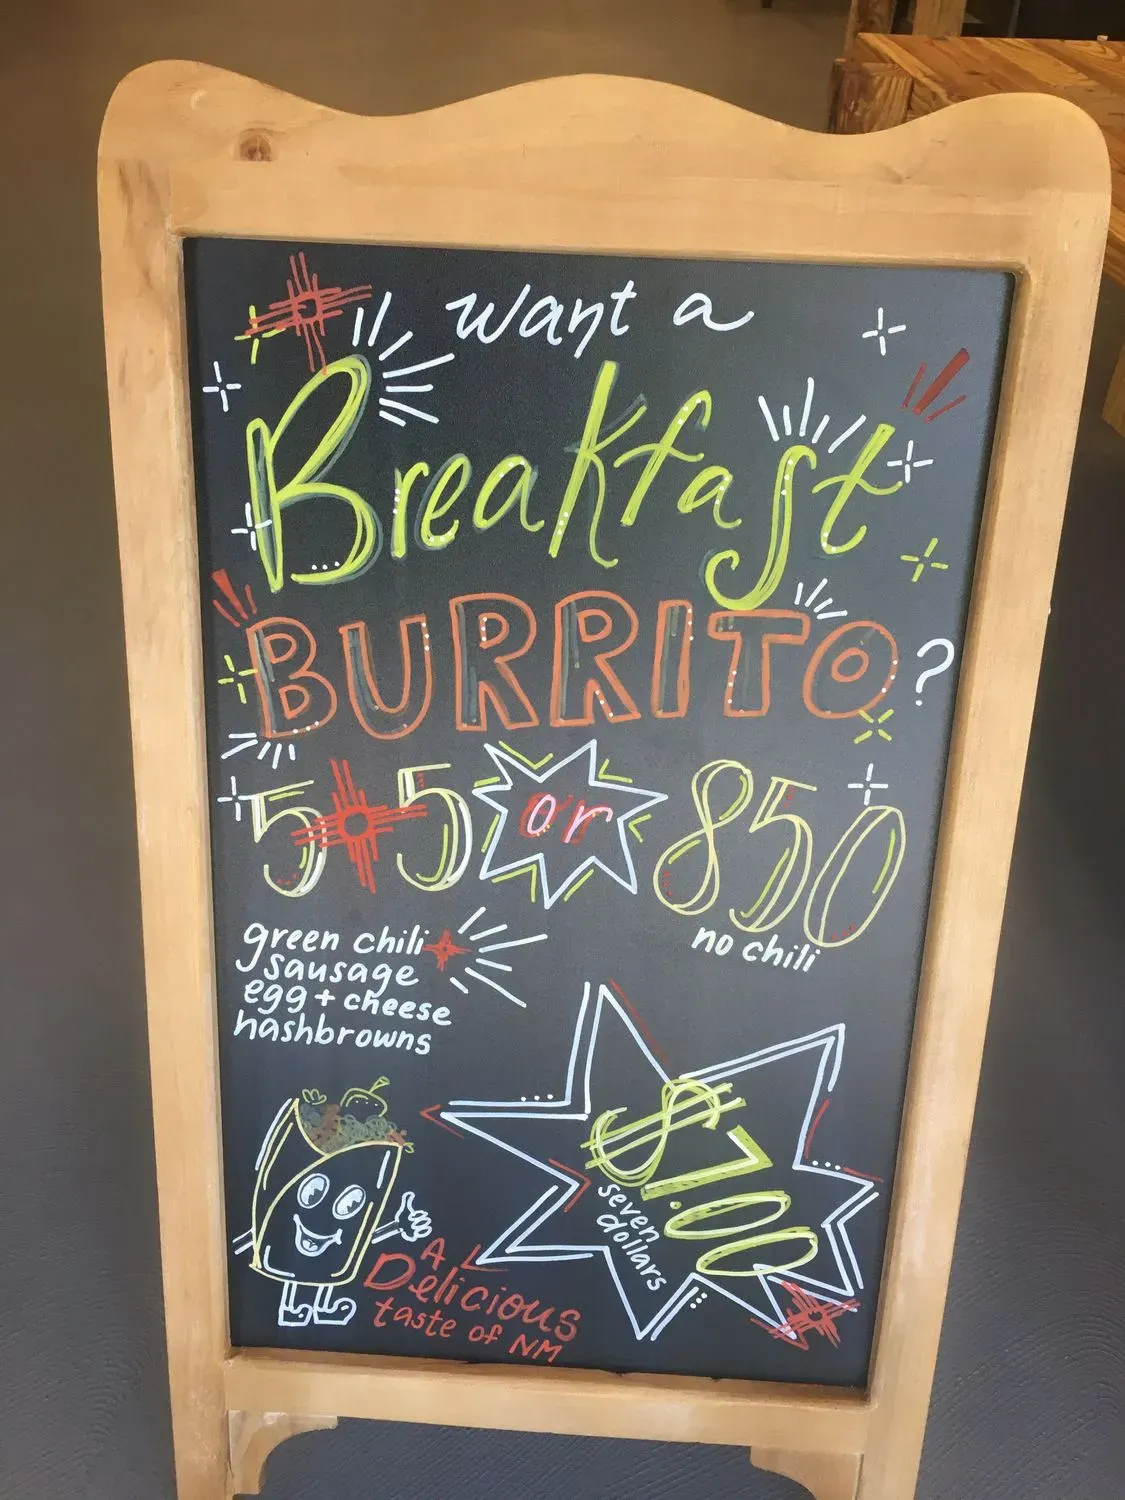 want a
Breakfast
BURRITO?
5 5 or 850
no chili
green chili
sausage
egg + cheese
hashbrowns
$7.00
seven
dollars
A
Delicious
taste of NM